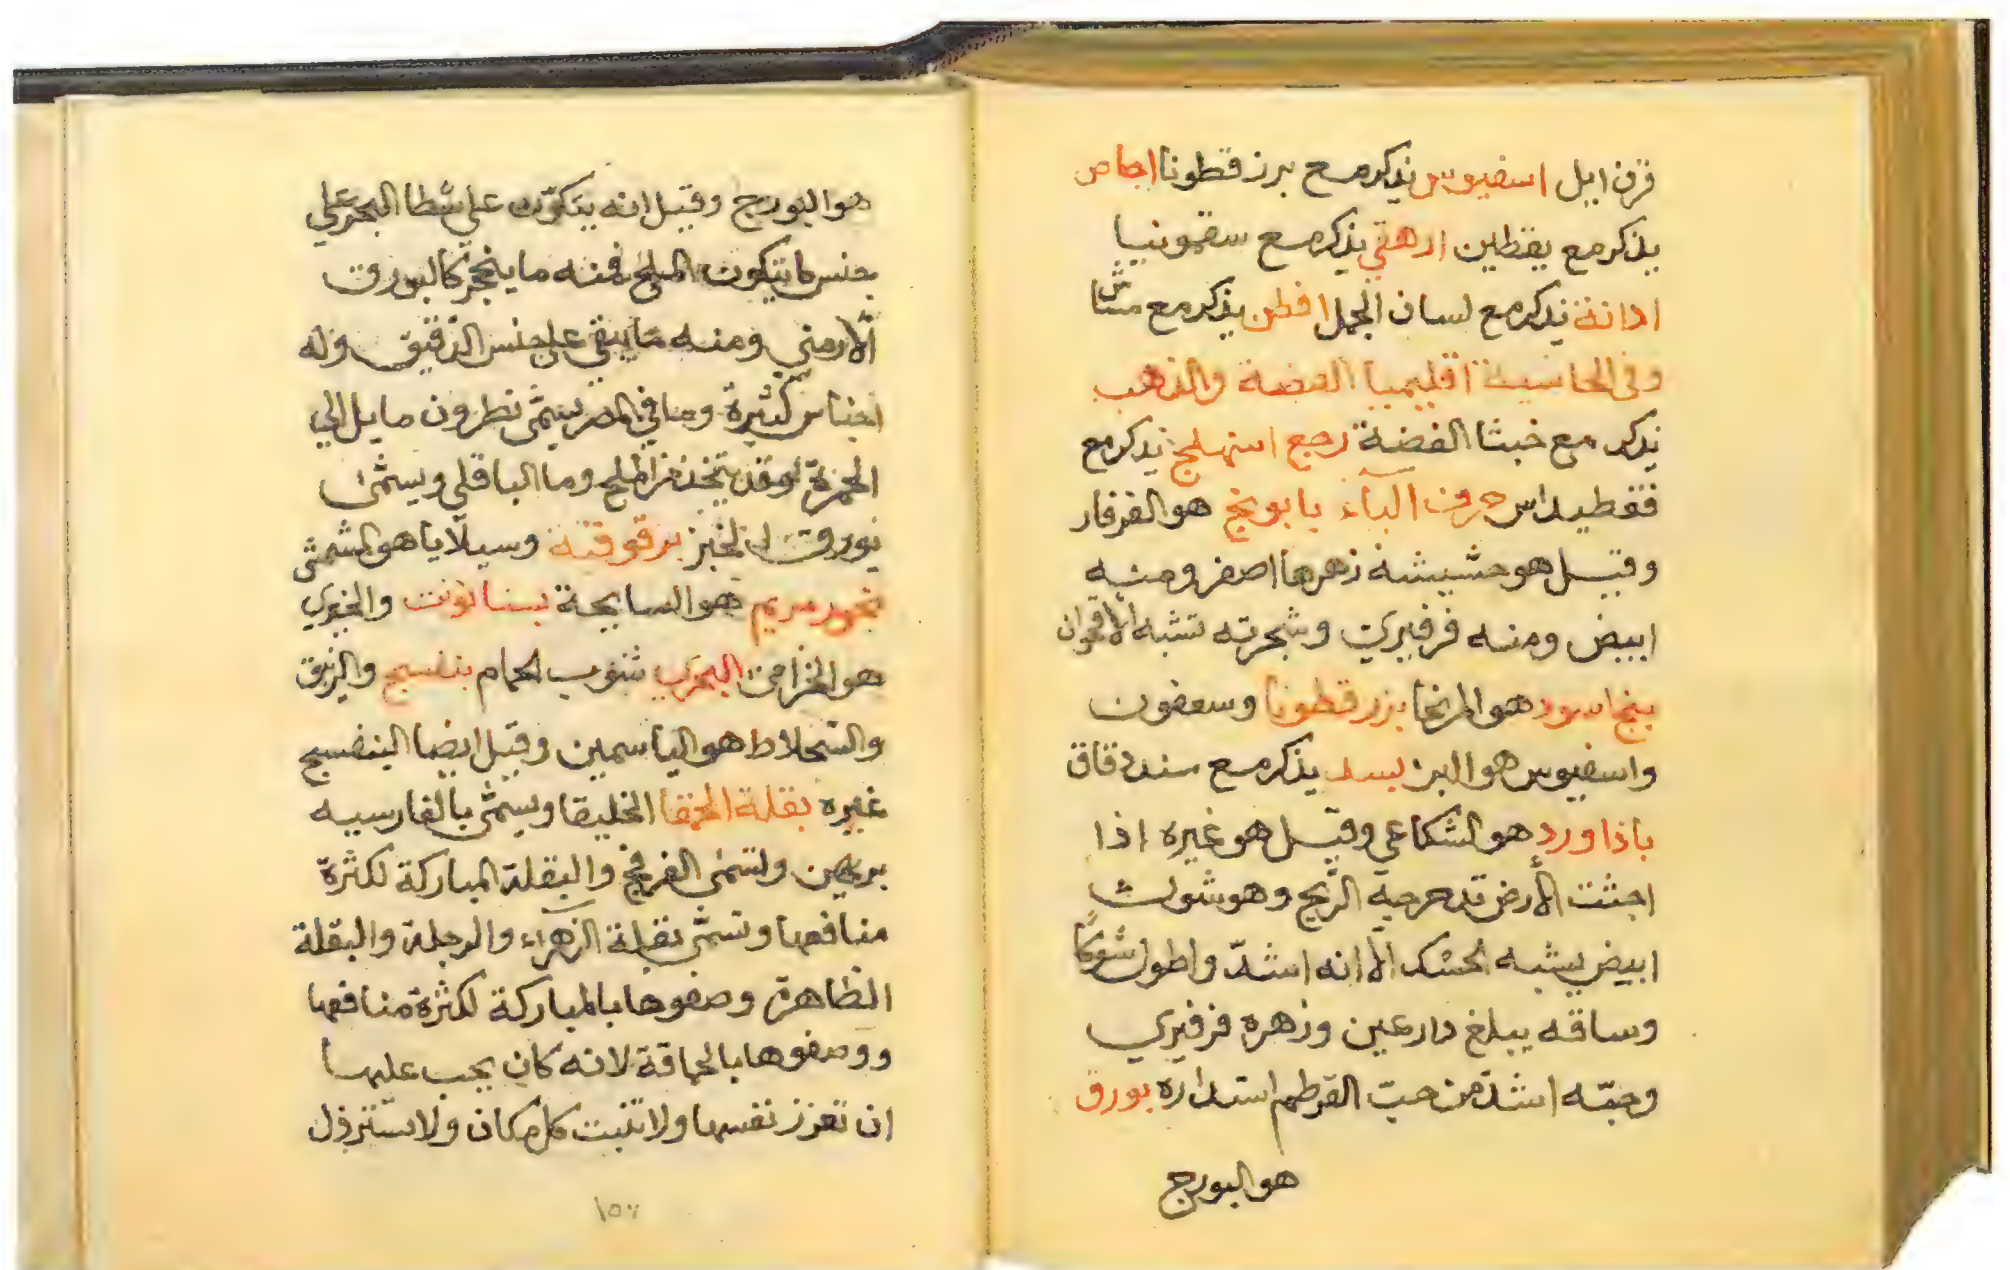 قرن ايل اسفيوس يذكر مع برز قطونا اجاص
يذكر مع يقطين ارهقي يذكر مع سقمونيا
اذانة يذكر مع لسان الجمل افطن يذكر مع مشا
وفي الحاشية اقليميا الفضة والذهب
يذكر مع خبثا الفضة رجع اسهلج يذكر مع
فقطيداس حرف البآء بابونج هو القرقار
وقيل هو حشيشة زهرها اصفر ومنه
ابيض ومنه فرفيري وشجرته تشبه الاقحوان
بنج اسود هو المرنحا بزر قطونا وسعفون
واسفيوس هو البزر بسد يذكر مع سندقاق
باذاورد هو الشكاعي وقيل هو غيره اذا
اجتثت الأرض قد حرجبه الريح وهو شوك
ابيض يشبه الحسك الا انه اشدّ واطول شوكاً
وساقه يبلغ دارعين وزهره فرفيري
وحبّه اشدّ من حبّ القرطم استداره بورق
هو البورج
هو البورج وقيل انه يتكوّن علي شطا البحر علي
جنس ما يتكون الملح فمنه ما ينحجر كالبورق
الأرمني ومنه ما يبقي علي جنس الدقيق وله
اجناس كثيرة وما في المصر يسمّى نطرون مايل الي
الحمرة وقد يتخذ من الملح وما الباقلي ويسمّى
بورق الخبز برقوقنه وسيلايا هو المشمش
بخور مريم هو السابجة بستا نونت والخيري
هو الخزامى البحرب شنوب الحمام بنفسج والزنبق
والسّجلاط هو الياسمين وقيل ايضا البنفسج
غيره بقلة الحمقا الخليقا ويسمّى بالفارسيه
بربهين وتسمى الفرفخ والبقلة المباركة لكثرة
منافعها وتسمّى بقلة الزهرآء والرجلة والبقلة
الظاهرة وصفوها بالمباركة لكثرة منافعها
ووصفوها بالحماقة لانه كان يجب عليها
ان تعزز نفسها ولا تنبت كل مكان ولا تسترذل